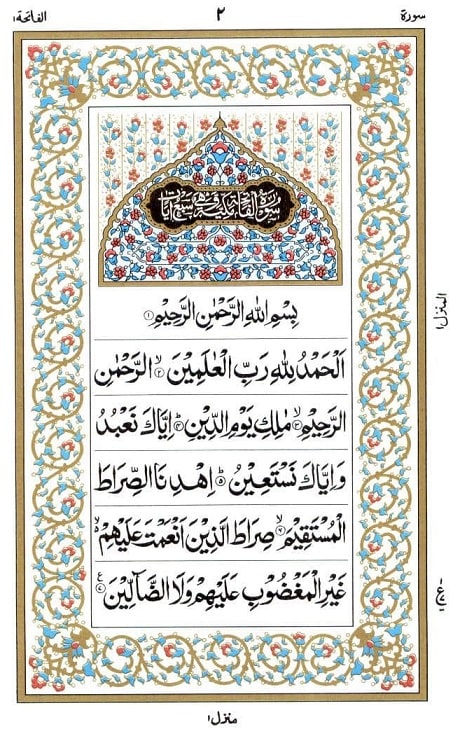 سورة
٢
الفاتحة١
سورة الفاتحة مكية وهي سبع آيات
بِسْمِ اللهِ الرَّحْمٰنِ الرَّحِيْمِ ۝١
اَلْحَمْدُ لِلّٰهِ رَبِّ الْعٰلَمِيْنَ ۙ۝٢ الرَّحْمٰنِ
الرَّحِيْمِ ۙ۝٣ مٰلِكِ يَوْمِ الدِّيْنِ ۝٤ اِيَّاكَ نَعْبُدُ
وَاِيَّاكَ نَسْتَعِيْنُ ۝٥ اِهْدِنَا الصِّرَاطَ
الْمُسْتَقِيْمَ ۙ۝٦ صِرَاطَ الَّذِيْنَ اَنْعَمْتَ عَلَيْهِمْ ۙ۬
غَيْرِ الْمَغْضُوْبِ عَلَيْهِمْ وَلَا الضَّآلِّيْنَ ۝٧
المنزل١
منزل١